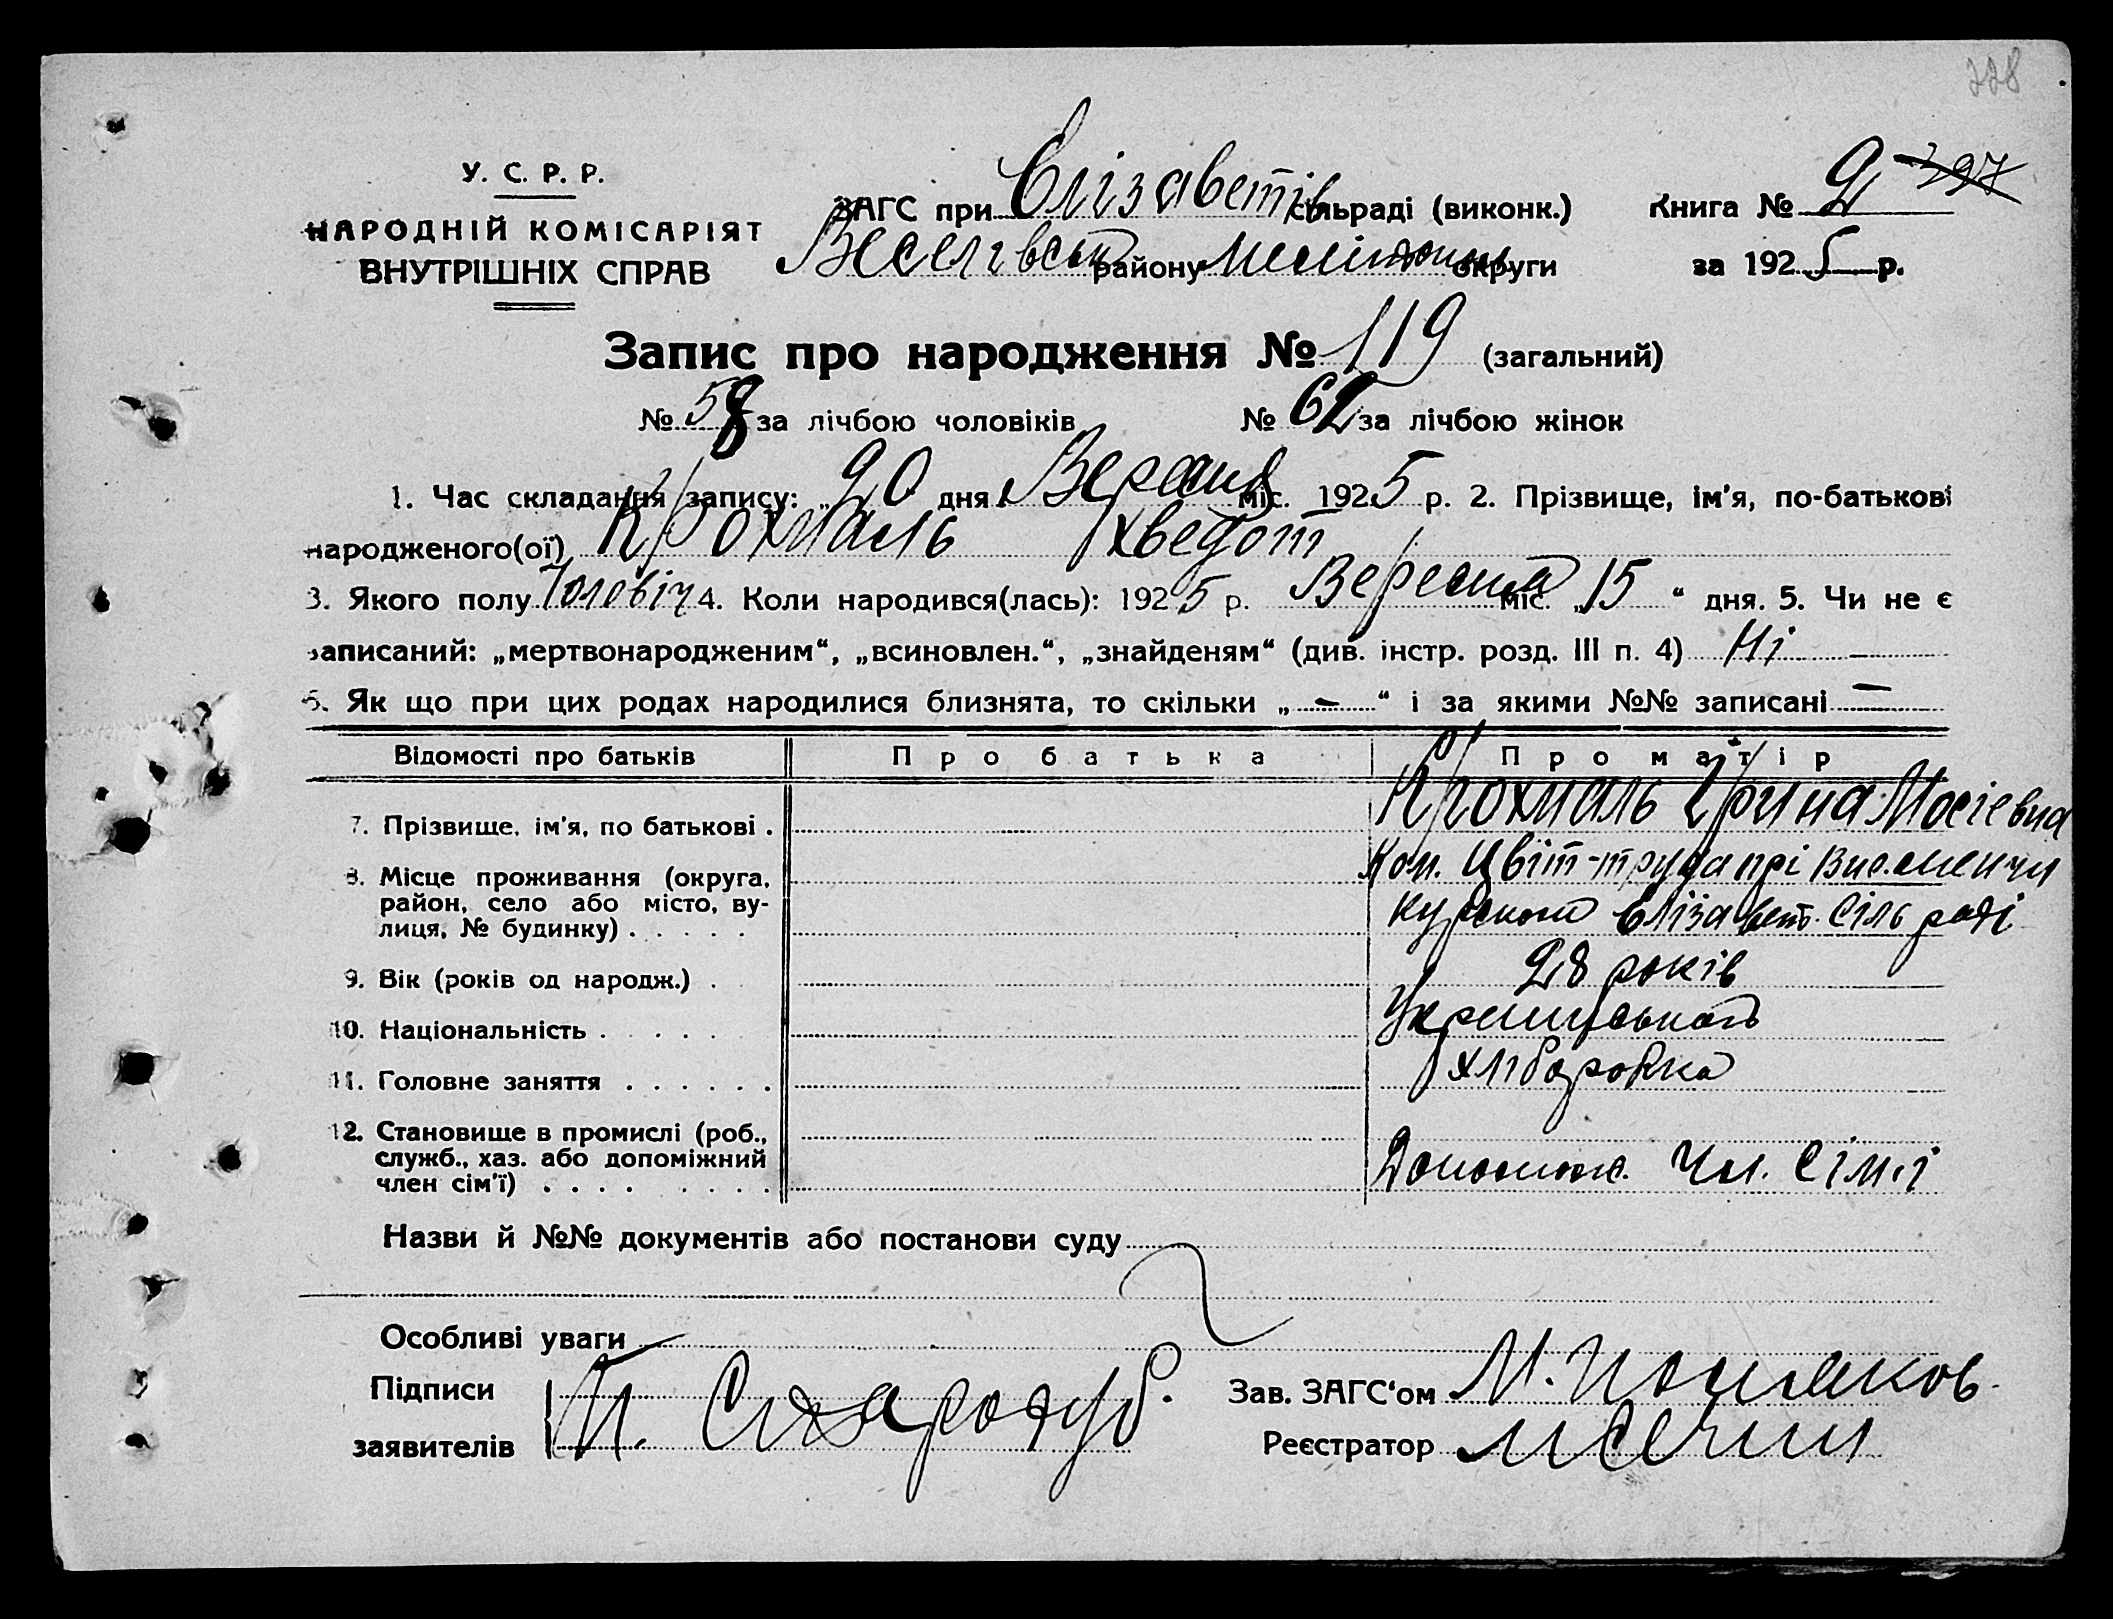 228
У. С. Р. Р.
НАРОДНІЙ КОМІСАРІЯТ
ВНУТРІШНІХ СПРАВ
ЗАГС при Єлізаветів сільраді (виконк.)
Веселівськ району Мелітоп округи
Книга № 2 297
за 1925 р.
Запис про народження № 119 (загальний)
№ 58 за лічбою чоловіків № 61 за лічбою жінок
1. Час складання запису: „20 дня Вересня міс. 1925 р. 2. Прізвище, ім'я, по-батькові
народженого(ої) Крохмаль Хведот
3. Якого полу Чоловіч 4. Коли народився(лась): 1925 р. Вересня міс. „15“ дня. 5. Чи не є
записаний: „мертвонародженим“, „всиновлен.“, „знайденям“ (див. інстр. розд. III п. 4) Ні
6. Як що при цих родах народилися близнята, то скільки „ — “ і за якими №№ записані —
Відомості про батьків Про батька Про матір
7. Прізвище, ім'я, по батькові . Крохмаль Ірина Мосіевна
8. Місце проживання (округа, район, село або місто, вулиця, № будинку) . . . . . Ком. Цвіт-труда прі
Єлізавет. Сіль раді
9. Вік (років од народж.) . 28 років
10. Національність . . . . .
11. Головне заняття . . . . . . хліборобка
12. Становище в промислі (роб., служб., хаз. або допоміжний член сім'ї) . . . . . . . . Допомож. чл. сім'ї
Назви й №№ документів або постанови суду
Особливі уваги —
Підписи
заявителів П. Стародуб.
Зав. ЗАГС‘ом М.
Реєстратор